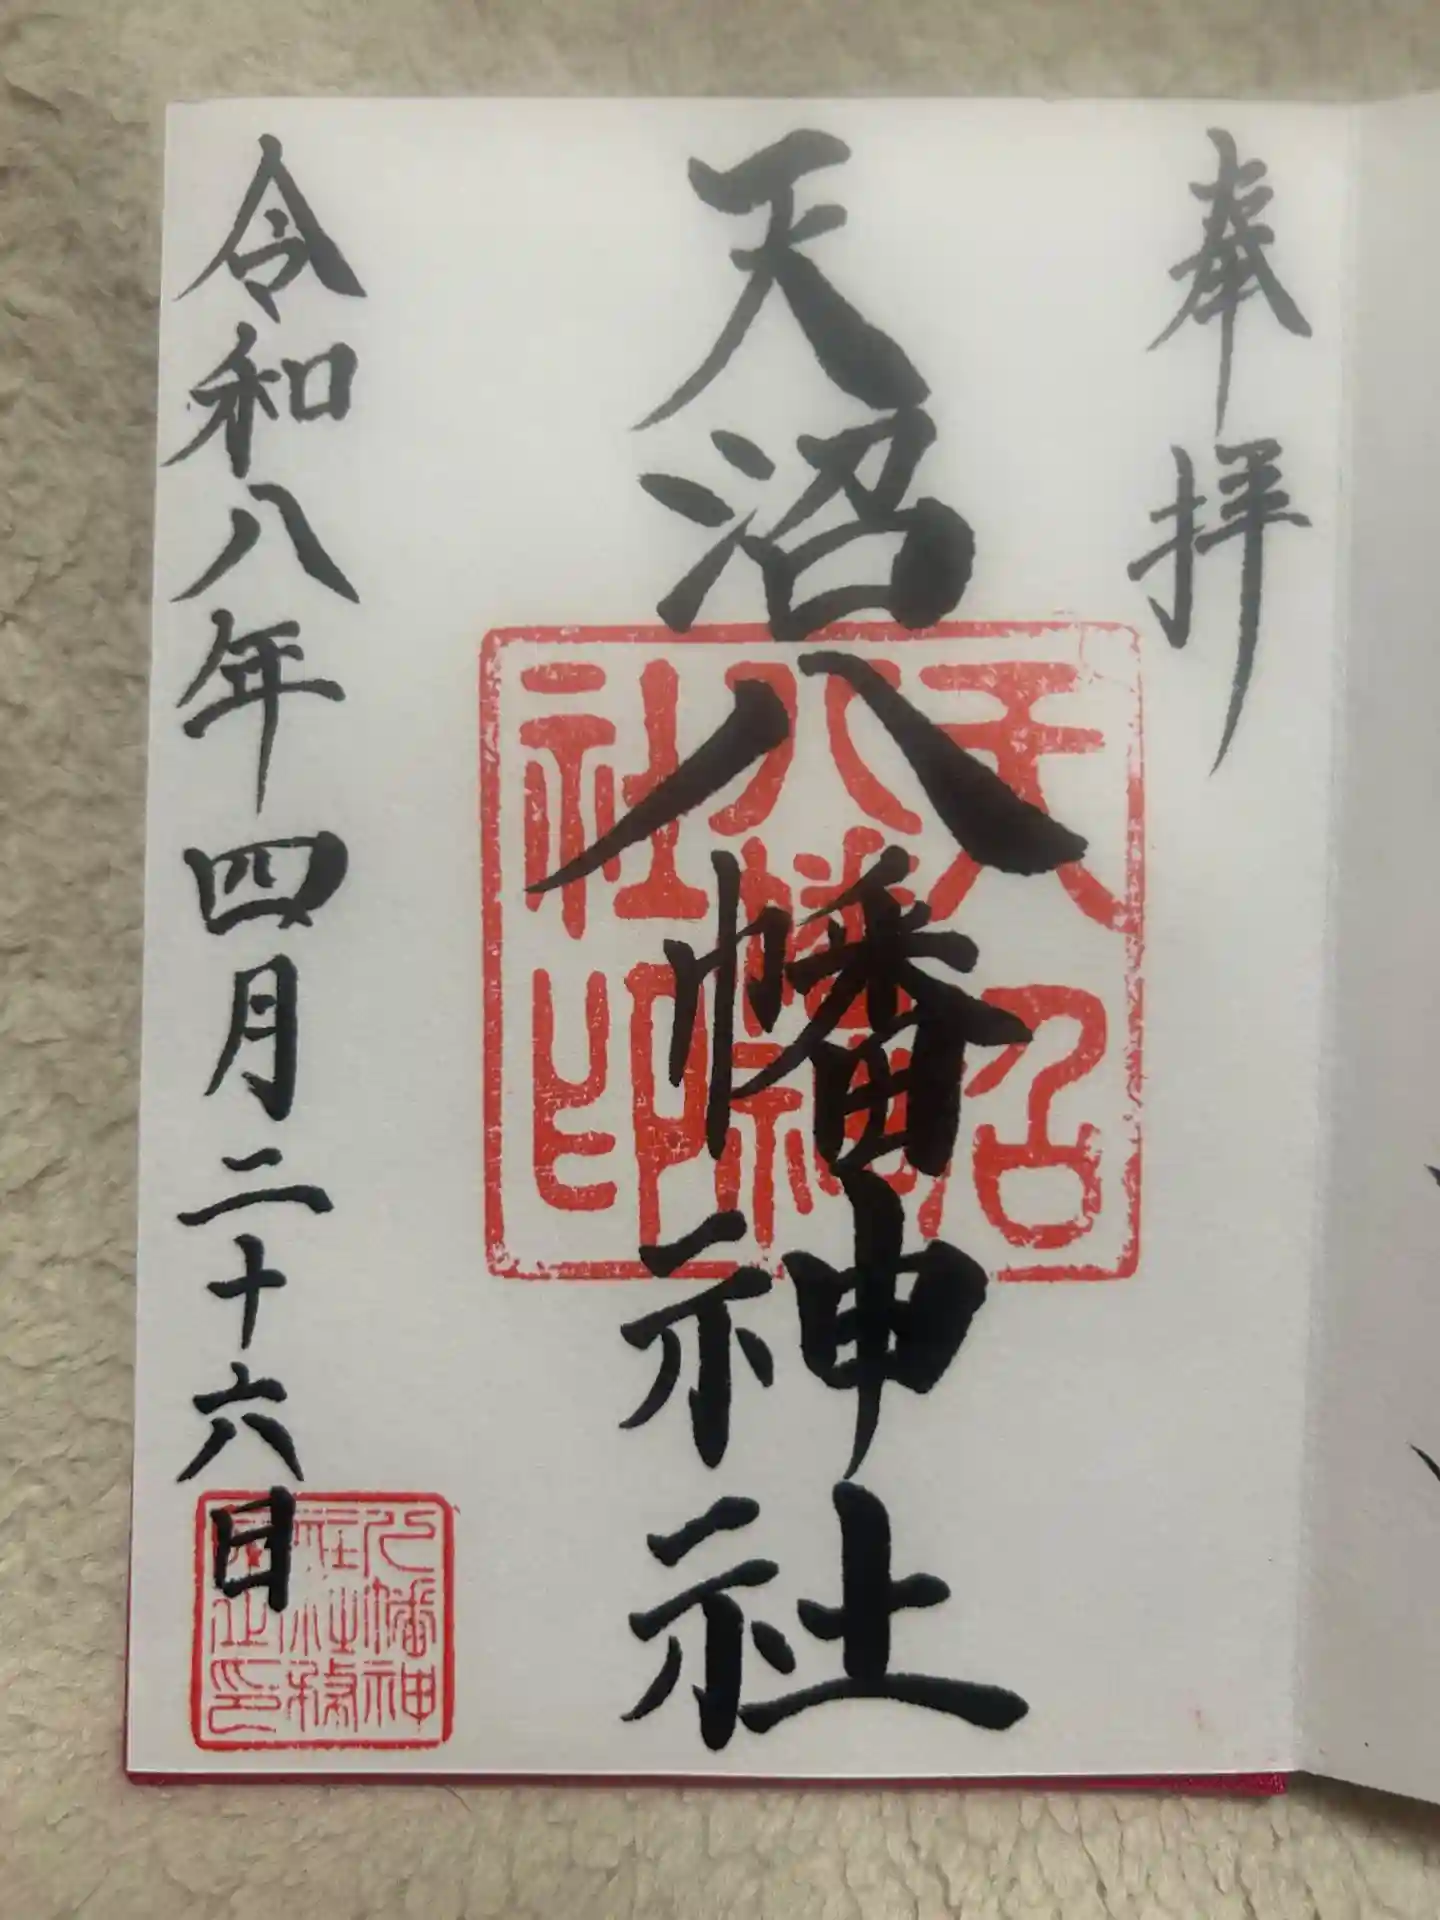 奉拝
天沼八幡神社
令和八年四月二十六日
天沼
八幡神
社印
八幡神
社社務